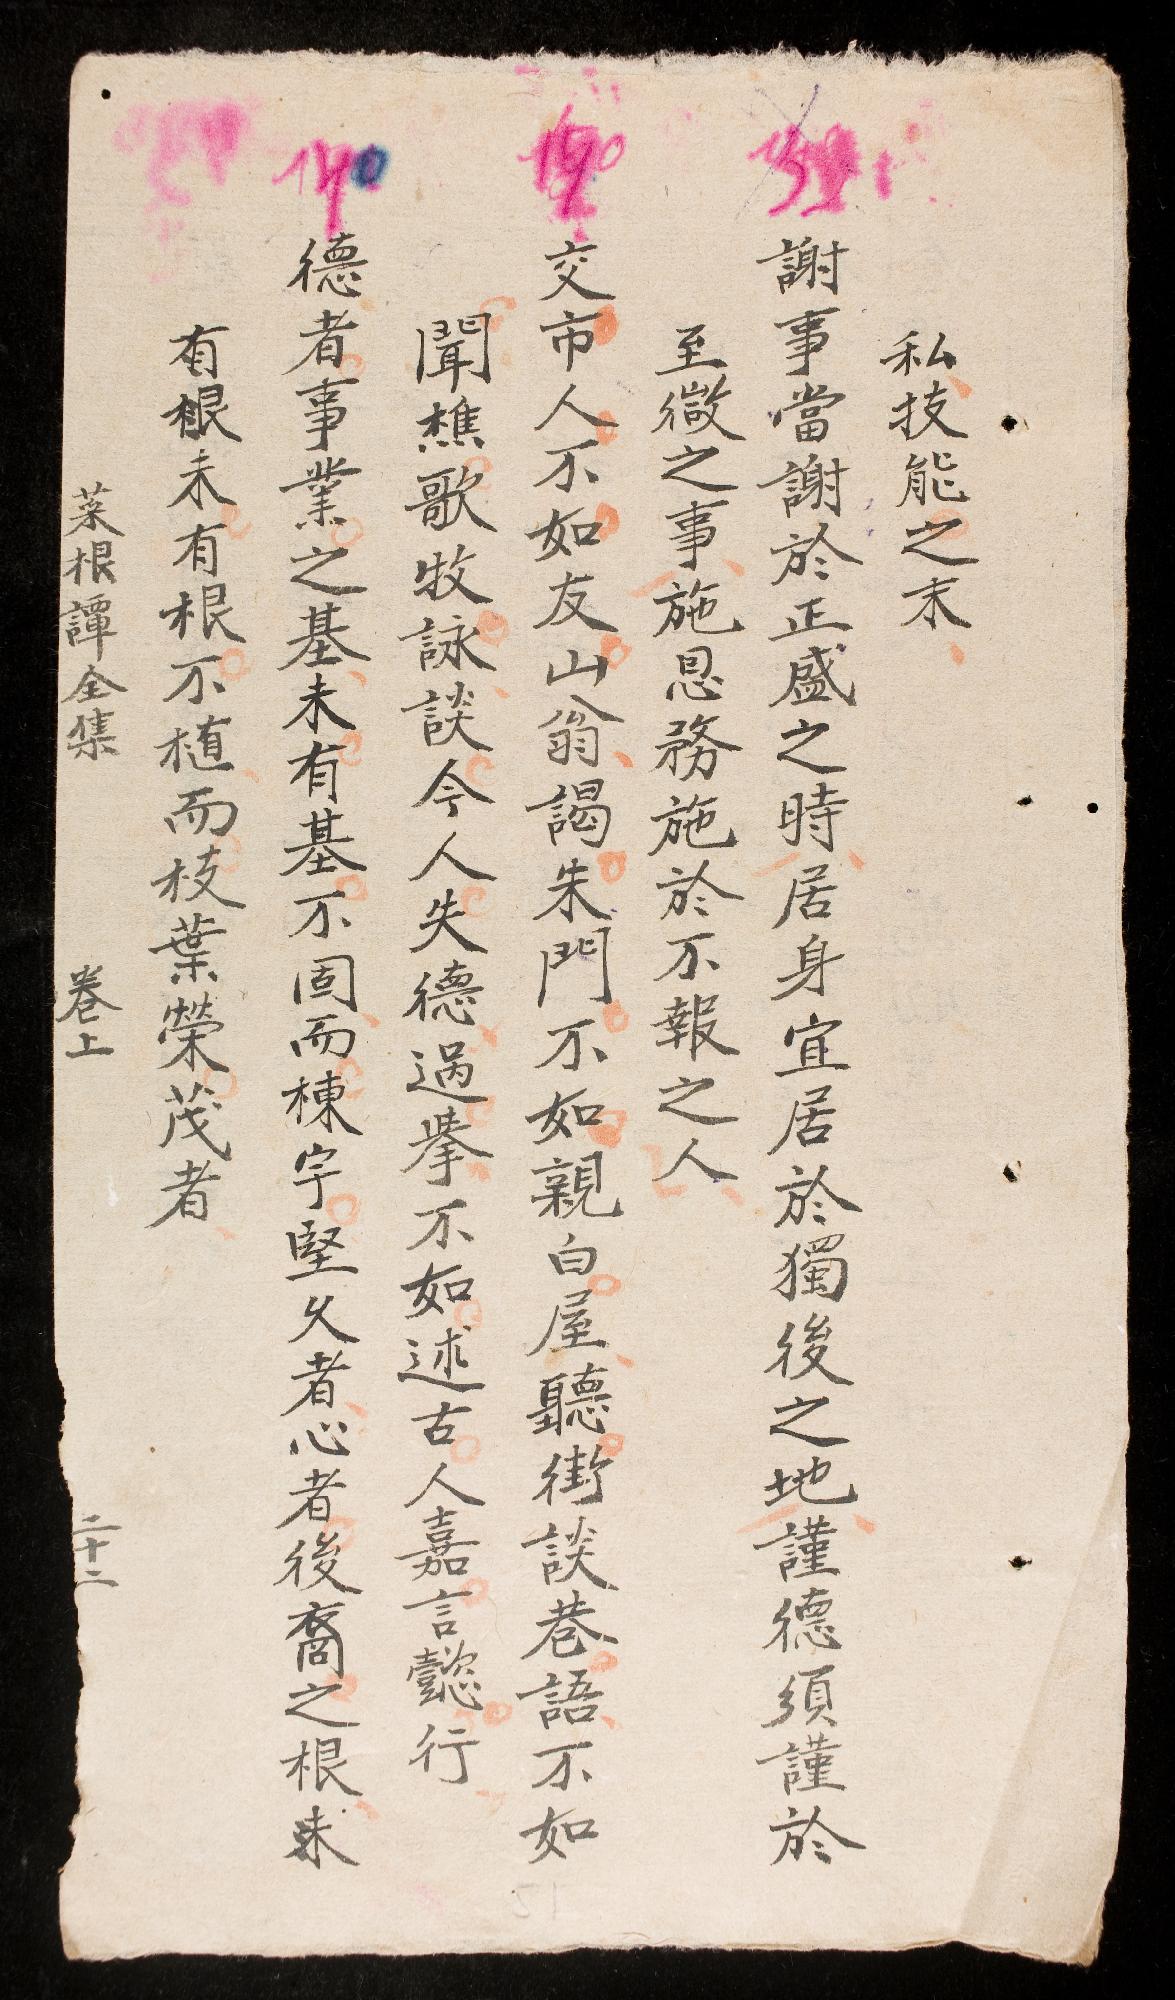 私技能之末
謝事當謝於正盛之時居身宜居於獨後之地謹德須謹於
至微之事施恩務施於不報之人
交市人不如友山翁謁朱門不如親白屋聽街談巷語不如
聞樵歌牧詠談今人失德過舉不如述古人嘉言懿行
德者事業之基未有基不固而棟宇堅久者心者後裔之根未
有根未有根不植而枝葉榮茂者
菜根譚全集 卷上 二十二
140